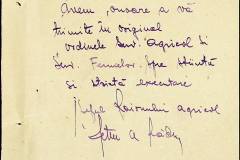 Avem, onoare a vă
trimite în original
ordinele Serv. Agricol și
Serv. Femelor, spre știință
și strictă executare
Șeful Raionului agricol